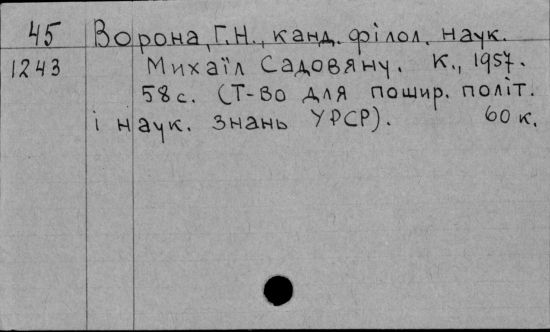 45 Ворона, Г.Н., канд. філол. наук.
1243 Михаїл Садовяну. К., 1957.
58 с. (Т-во для пошир. політ.
і наук. знань УРСР). 60 к.